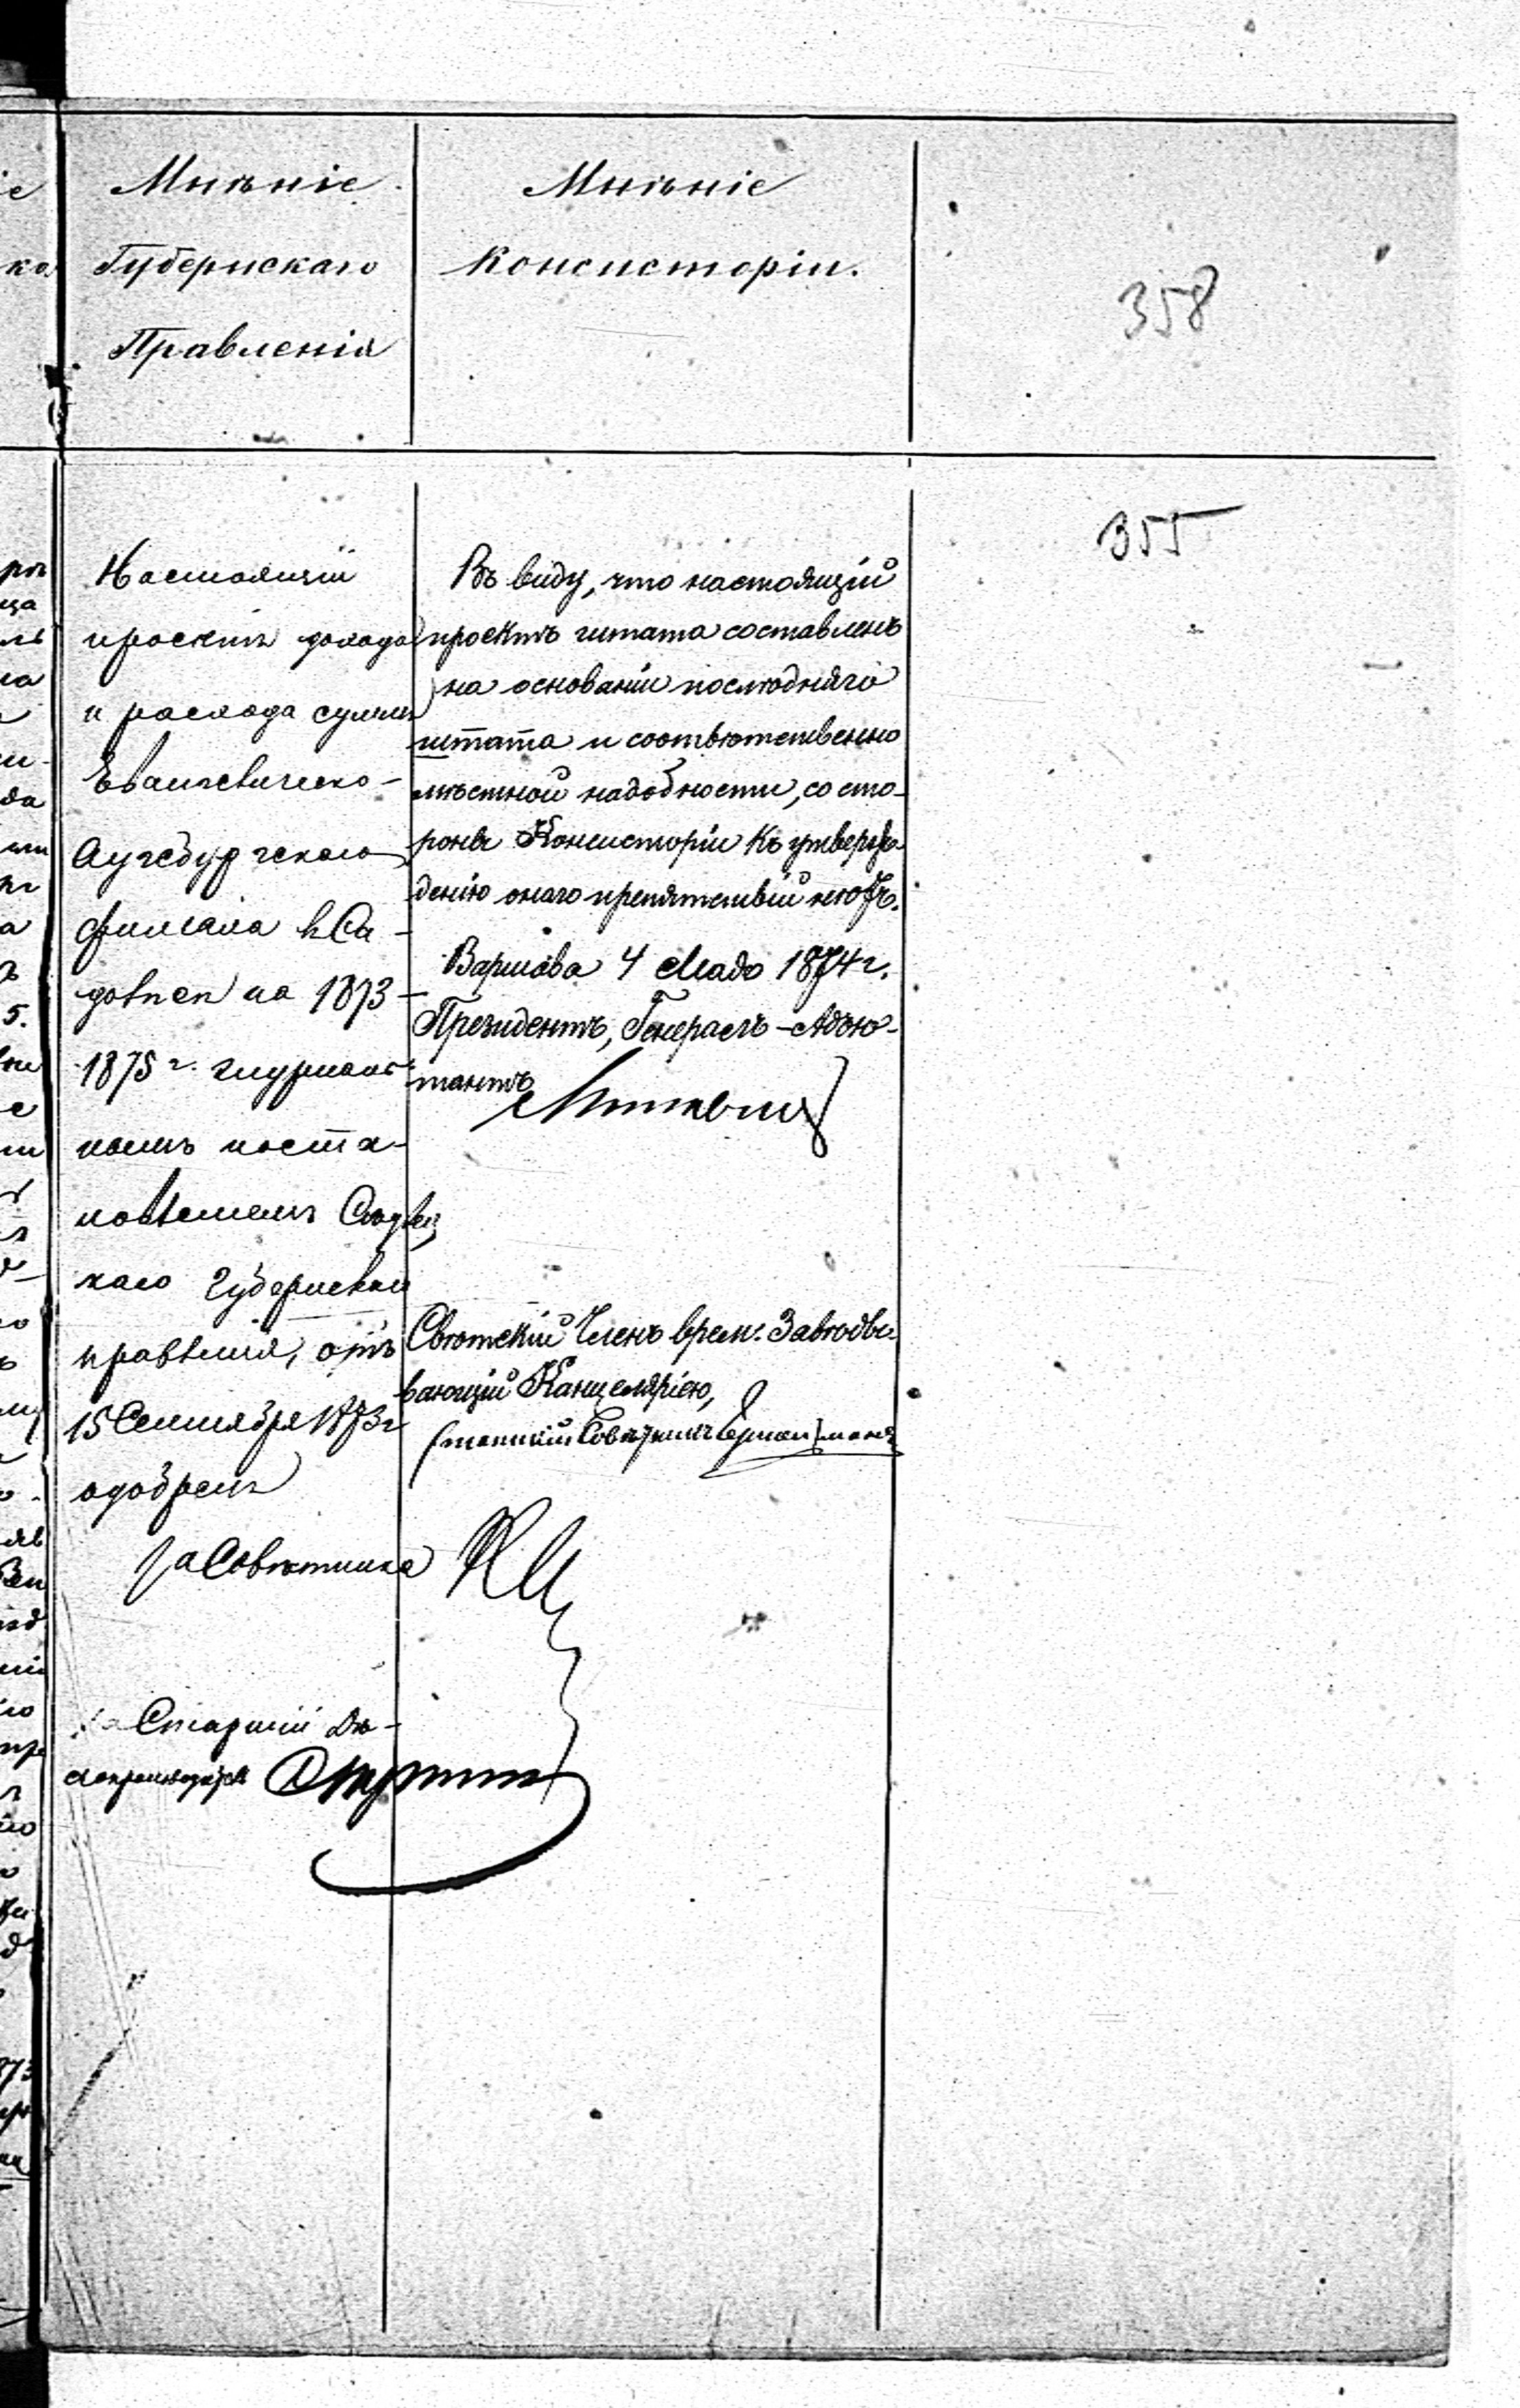 Мнѣніе
Губернскаго
Правленія
Мнѣніе
Консисторіи.
358
355
Настоящій
проектъ дохода
и расхода суммъ
Евангелическо-
Аугсбургскаго
филіала въ Са-
на 1873-
1875 г. журналь-
нымъ поста-
новленіемъ
каго Губернскаго
правленія, отъ
15 Сентября 1873 г
одобренъ
За Совѣтника
Старшій Дѣ-
лопроизводитель
Въ виду, что настоящій
проектъ штата составленъ
на основаніи послѣдняго
штата и соотвѣтственно
мѣстной надобности, со сто-
роны Консисторіи къ утверж-
денію онаго препятствій нѣтъ.
Варшава 4 1874 г.
Президентъ, Генералъ-Адъю-
тантъ
Свѣтскій Членъ врем. Завѣды-
вающій Канцеляріею,
Статскій Совѣтникъ